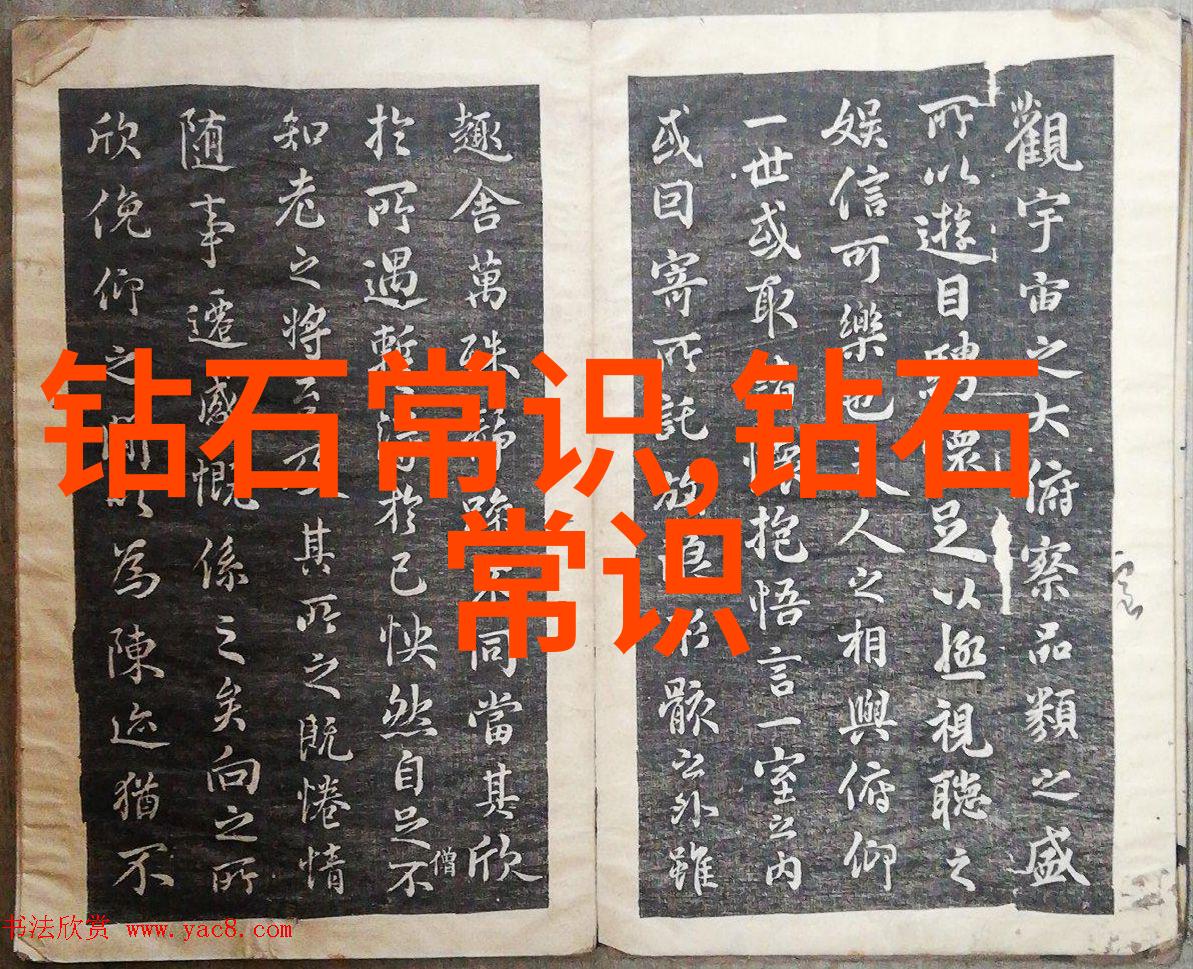 觀宇宙之大俯察品類之盛
所以遊目騁懷足以極視聽之
娛信可樂也人之相與俯仰
一世或取抱悟言一室之內
或因寄所託放骸之外雖
趣舍萬殊同當其欣
僧
於所遇於己怏然自足不
知老之將其所之既惓情
隨事遷感慨係之矣向之所
欣俛仰之以為陳迹猶不
钻石常识,钻石
常识
书法欣赏 www.yac8.com